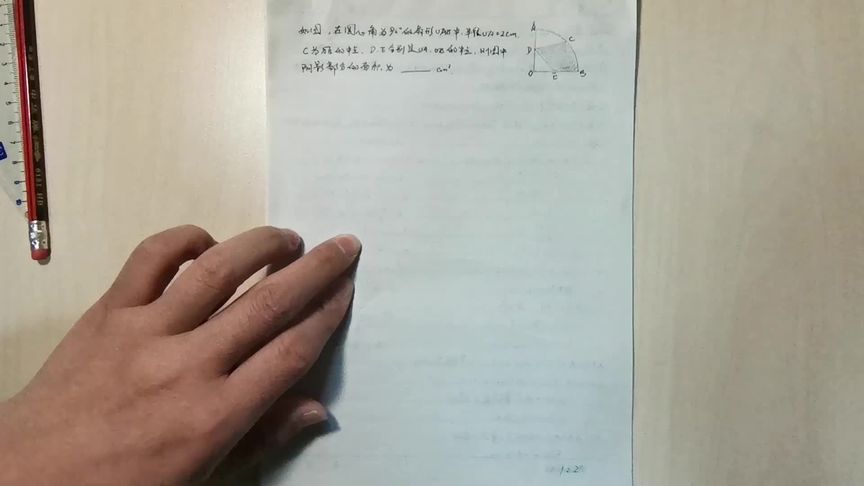 如图，在圆心角为90°的扇形OAB中，半径OA=2cm，
C为弧的中点，D、E分别是OA、OB的中点，则图中
阴影部分的面积为 ______ cm².
A
C
D
O
E
B